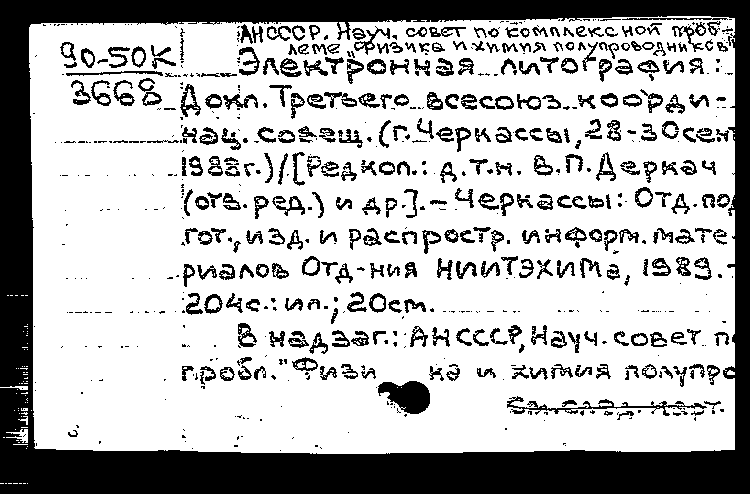 АН СССР. Науч. совет по комплексной проб-
леме "Физика и химия полупроводников"
90-50К
3668
Электронная литография:
Докл. Третьего всесоюз. коорди-
нац. совещ. (г. Черкассы, 28-30 сент
1988г.)/[Редкол.: д.т.н. В.П. Деркач
(отв. ред.) и др.]. - Черкассы: Отд. под
гот., изд. и распростр. информ. мате-
риалов Отд-ния НИИТЭХИМа, 1989. -
204с.: ил.; 20см.
В надзаг.: АН СССР, Науч. совет по
пробл. "Физи ка и химия полупро
См. след. карт.